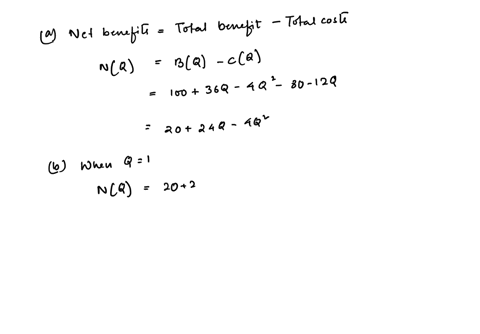 (a) Net benefits = Total benefit - Total costs
N(Q) = B(Q) - C(Q)
= 100 + 36Q - 4Q² - 80 - 12Q
= 20 + 24Q - 4Q²
(b) When Q = 1
N(Q) = 20 + 2